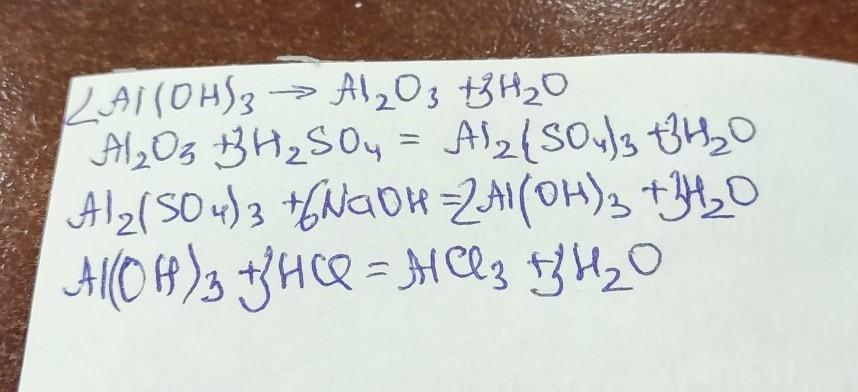 2Al(OH)₃ → Al₂O₃ +3H₂O
Al₂O₃ +3H₂SO₄ = Al₂(SO₄)₃ +3H₂O
Al₂(SO₄)₃ +6NaOH =2Al(OH)₃ +3H₂O
Al(OH)₃ +3HCl = AlCl₃ +3H₂O